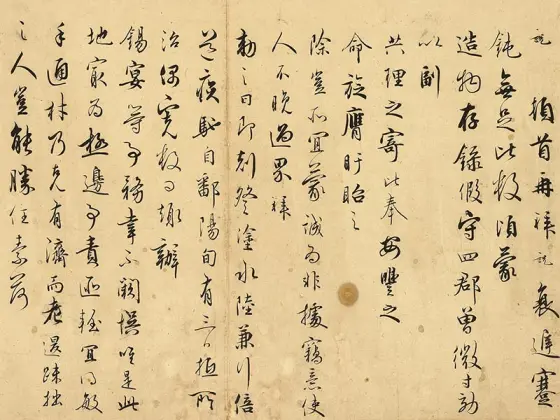 說頓首再拜說衰遲蹇
鈍無足比數頃蒙
造物存錄假守四郡曾微寸効
以副
共理之寄比奉安豐之
命旋膺盱眙之
除豈所宜蒙誠為非據竊意使
人不晚過界拜
勅之日即刻登塗水陸兼行倍
道疾馳自鄱陽旬有三日抵所
治偶寬數日趣辦
錫宴等事務幸不闕誤唯是此
地最為極邊事責匪輕宜得敏
手通材乃克有濟而老退疎拙
之人豈能勝任素荷